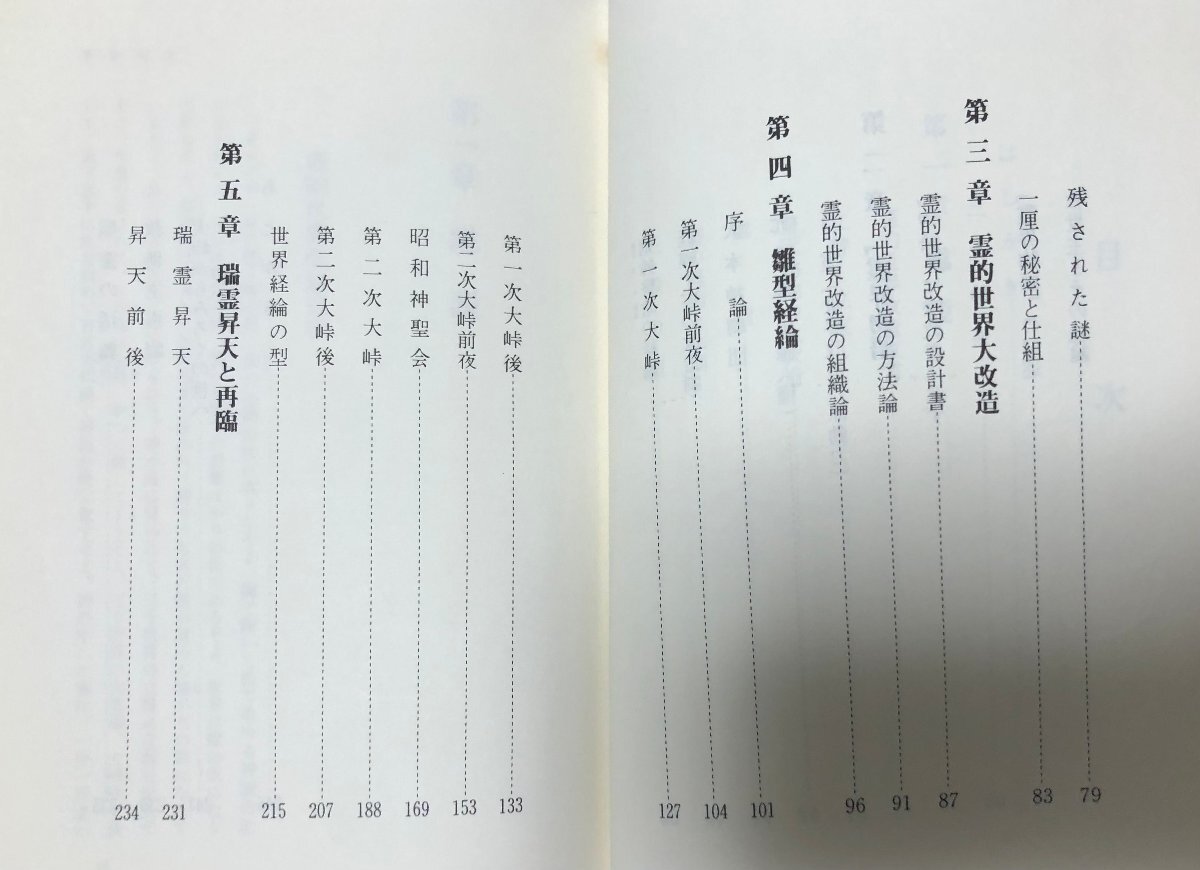 残された謎 79
一厘の秘密と仕組 83
第三章 霊的世界大改造
霊的世界改造の設計書 87
霊的世界改造の方法論 91
霊的世界改造の組織論 96
第四章 雛型経綸
序論 101
第一次大峠前夜 104
第一次大峠 127
第一次大峠後 133
第二次大峠前夜 153
昭和神聖会 169
第二次大峠 188
第二次大峠後 207
世界経綸の型 215
第五章 瑞霊昇天と再臨
瑞霊昇天 231
昇天前後 234